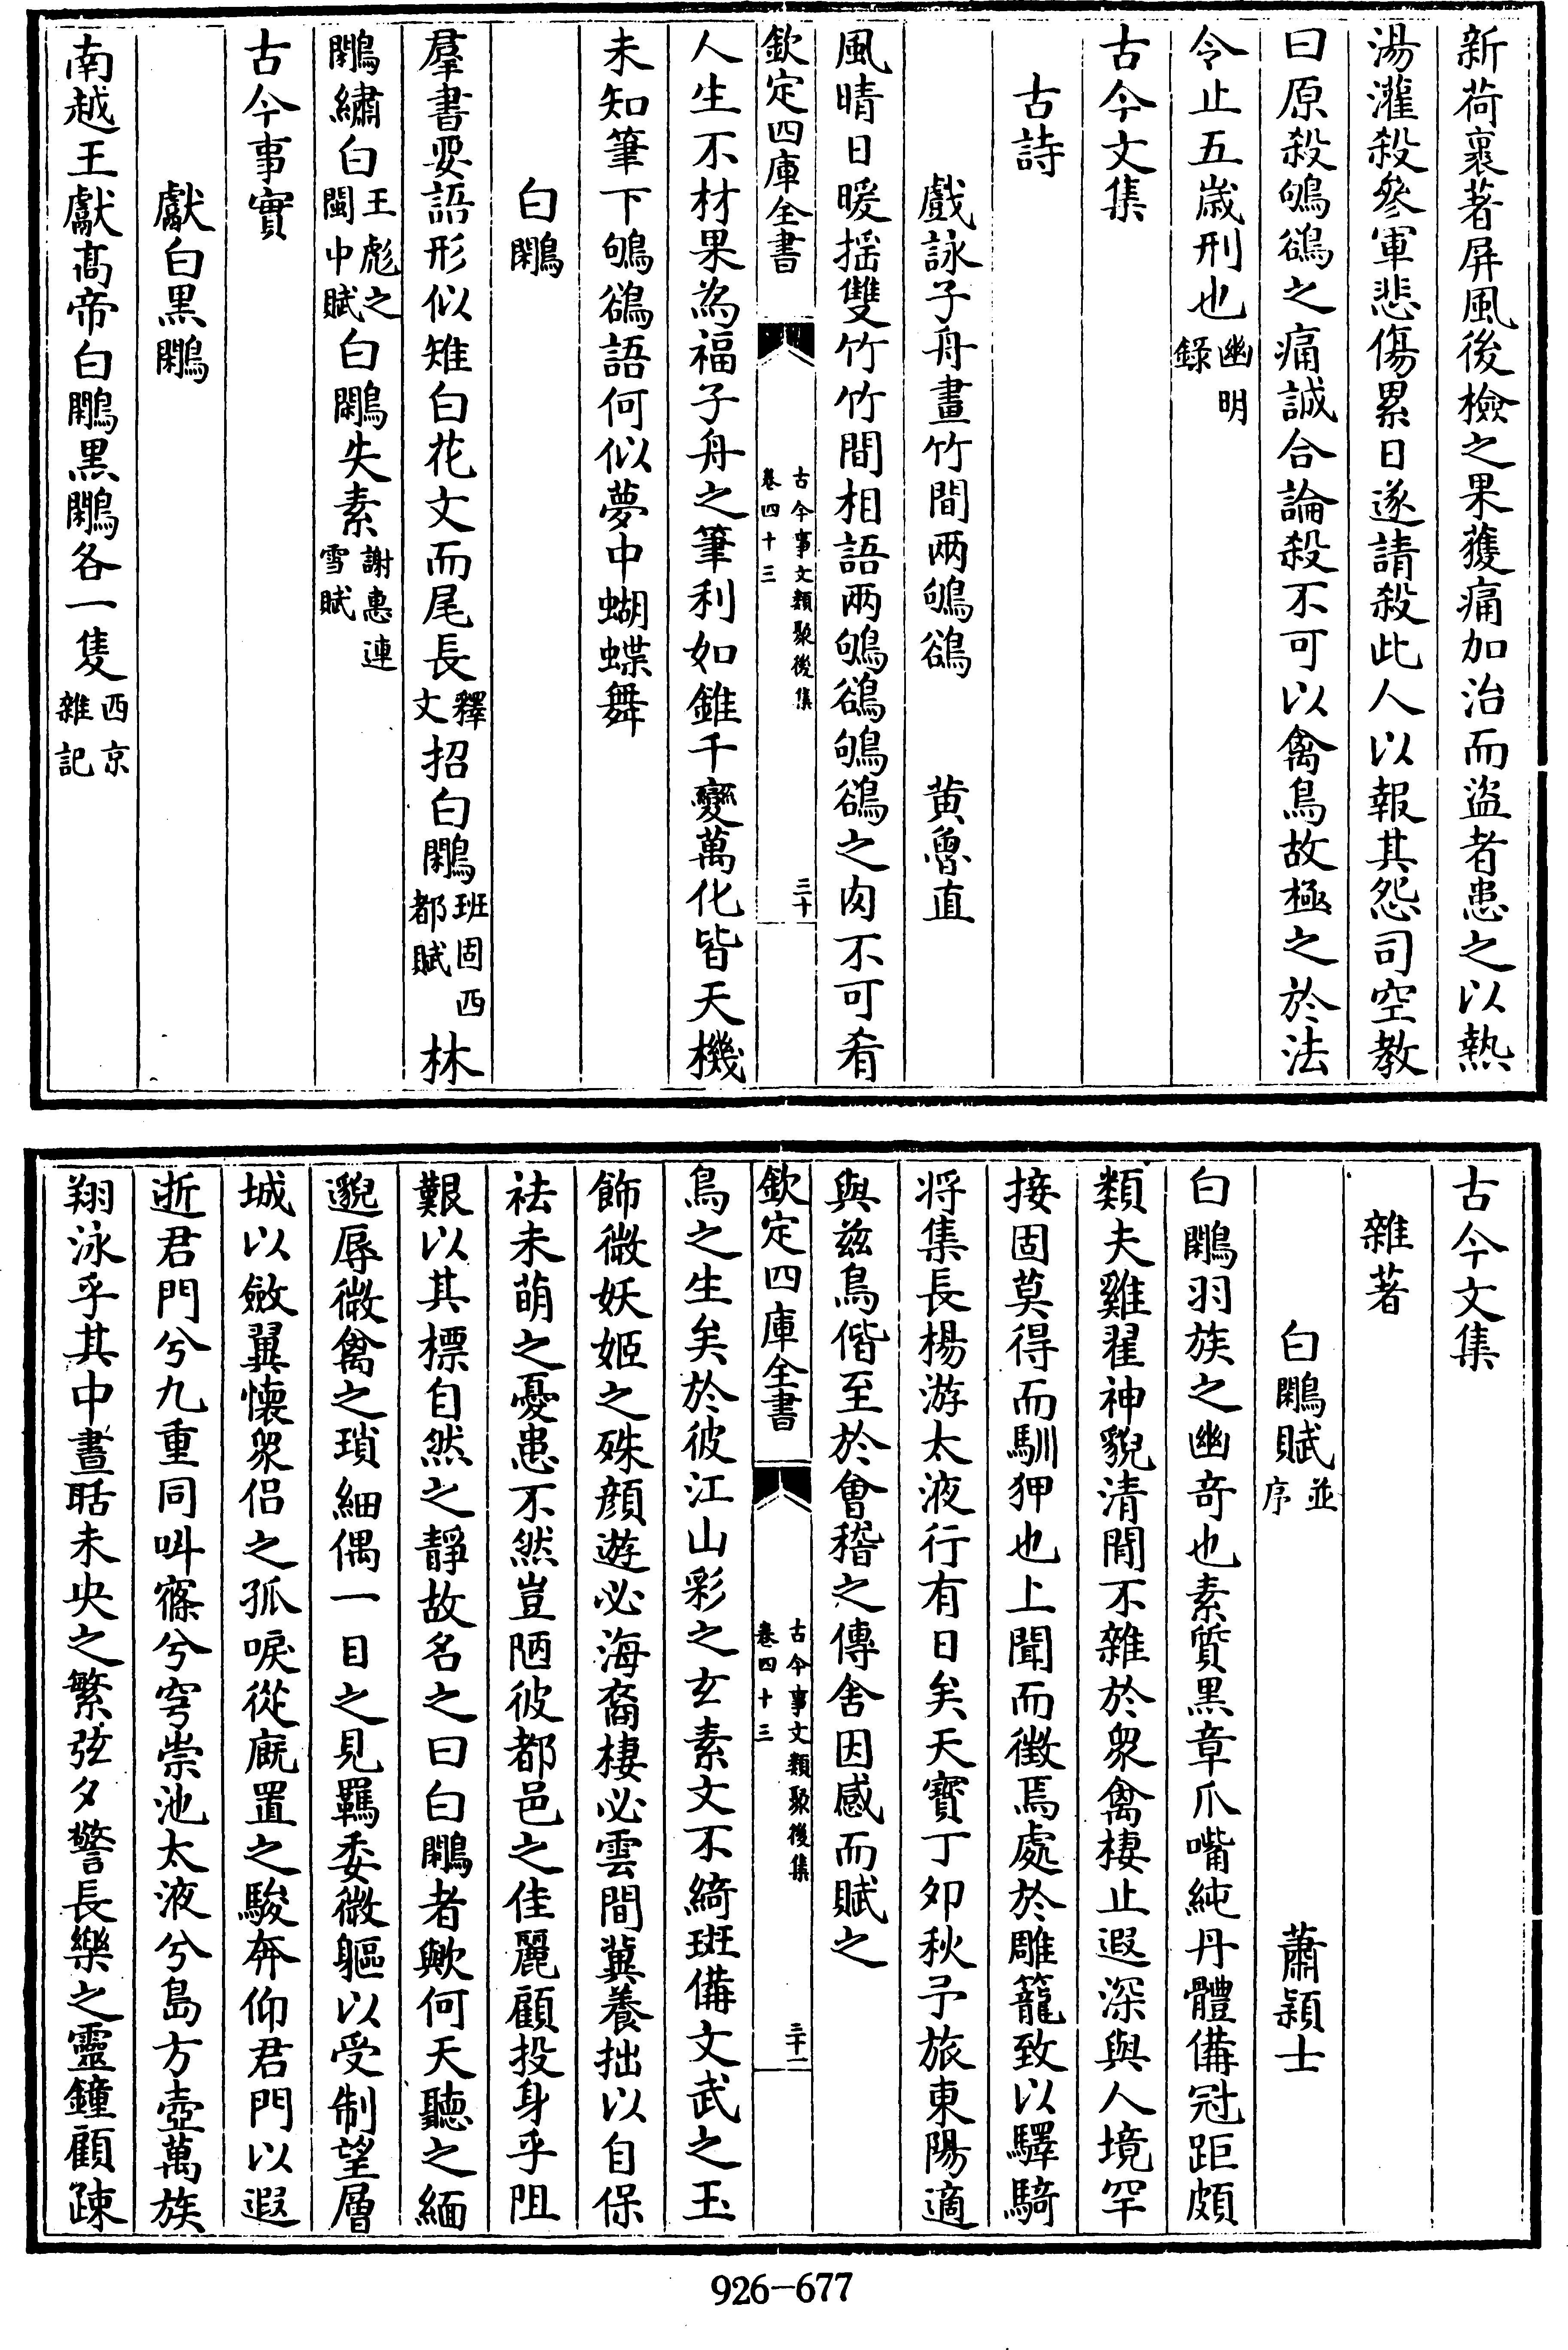 新荷裹著屏風後檢之果獲痛加治而盜者患之以熱
湯灌殺參軍悲傷累日遂請殺此人以報其怨司空教
曰原殺鴝鵒之痛誠合論殺不可以禽鳥故極之於法
令止五歲刑也幽明錄
古今文集
古詩
戲詠子舟畫竹間兩鴝鵒 黄魯直
風晴日暖揺雙竹竹間相語兩鴝鵒鴝鵒之肉不可肴
欽定四庫全書 古今事文類聚後集 卷四十三 三十
人生不材果為福子舟之筆利如錐千變萬化皆天機
未知筆下鴝鵒語何似夢中蝴蝶舞
白鷴
羣書要語形似雉白花文而尾長釋文招白鷴班固西都賦林
鷴繡白王彪之閩中賦白鷴失素謝惠連雪賦
古今事實
獻白黒鷴
南越王獻高帝白鷴黒鷴各一隻西京雜記
古今文集
雜著
白鷴賦並序 蕭潁士
白鷴羽族之幽竒也素質黒章爪嘴純丹體備冠距頗
類夫雞翟神貌清閒不雜於衆禽棲止遐深與人境罕
接固莫得而馴狎也上聞而徴焉處於雕籠致以驛騎
将集長楊游太液行有日矣天寳丁夘秋予旅東陽適
與兹鳥偕至於會稽之傳舍因感而賦之
欽定四庫全書 古今事文類聚後集 卷四十三 三十一
鳥之生矣於彼江山彩之玄素文不綺斑備文武之玉
飾微妖姬之殊顔遊必海裔棲必雲間冀養拙以自保
祛未萌之憂患不然豈陋彼都邑之佳麗顧投身乎阻
艱以其標自然之靜故名之曰白鷴者歟何天聽之緬
邈辱微禽之瑣細偶一目之見羈委微軀以受制望層
城以斂翼懐衆侣之孤唳從廐置之駿奔仰君門以遐
逝君門兮九重同叫窱兮穹崇池太液兮島方壺萬族
翔泳乎其中晝聒未央之繁弦夕警長樂之靈鐘顧踈
926-677